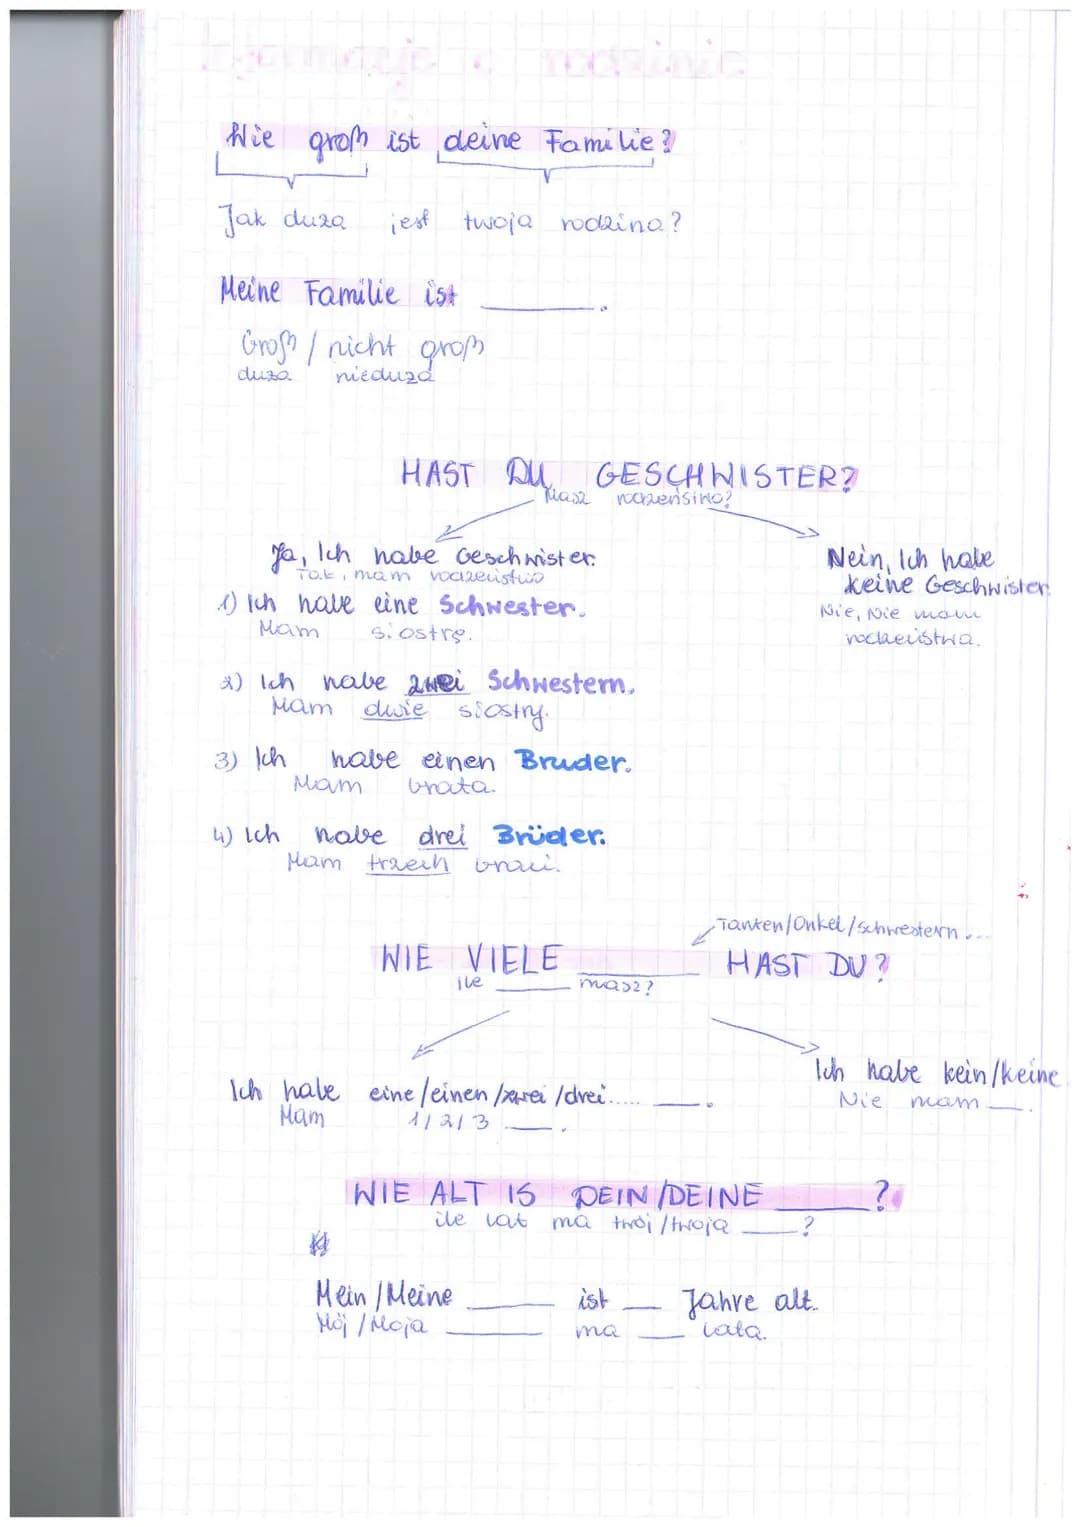 Wie groß ist deine Familie?
Jak duża jest twoja rodzina?
Meine Familie ist ______.
Groß / nicht groß
duża nieduża
HAST DU GESCHWISTER?
Masz rodzeństwo?
Ja, Ich habe Geschwister.
Tak, mam rodzeństwo
Nein, Ich habe
keine Geschwister.
Nie, Nie mam
rodzeństwa.
1) Ich habe eine Schwester.
Mam siostrę.
2) Ich habe zwei Schwestern.
Mam dwie siostry.
3) Ich habe einen Bruder.
Mam brata.
4) Ich habe drei Brüder.
Mam trzech braci.
Tanten/Onkel/Schwestern...
WIE VIELE ______ HAST DU?
ile ______ masz?
Ich habe eine/einen/zwei/drei..... ____.
Mam 1/2/3 ____.
Ich habe kein/keine
Nie mam ___.
WIE ALT IS DEIN/DEINE ______?
ile lat ma twój/twoja ____?
Mein/Meine ______ ist ___ Jahre alt.
Mój/Moja ______ ma ___ lata.